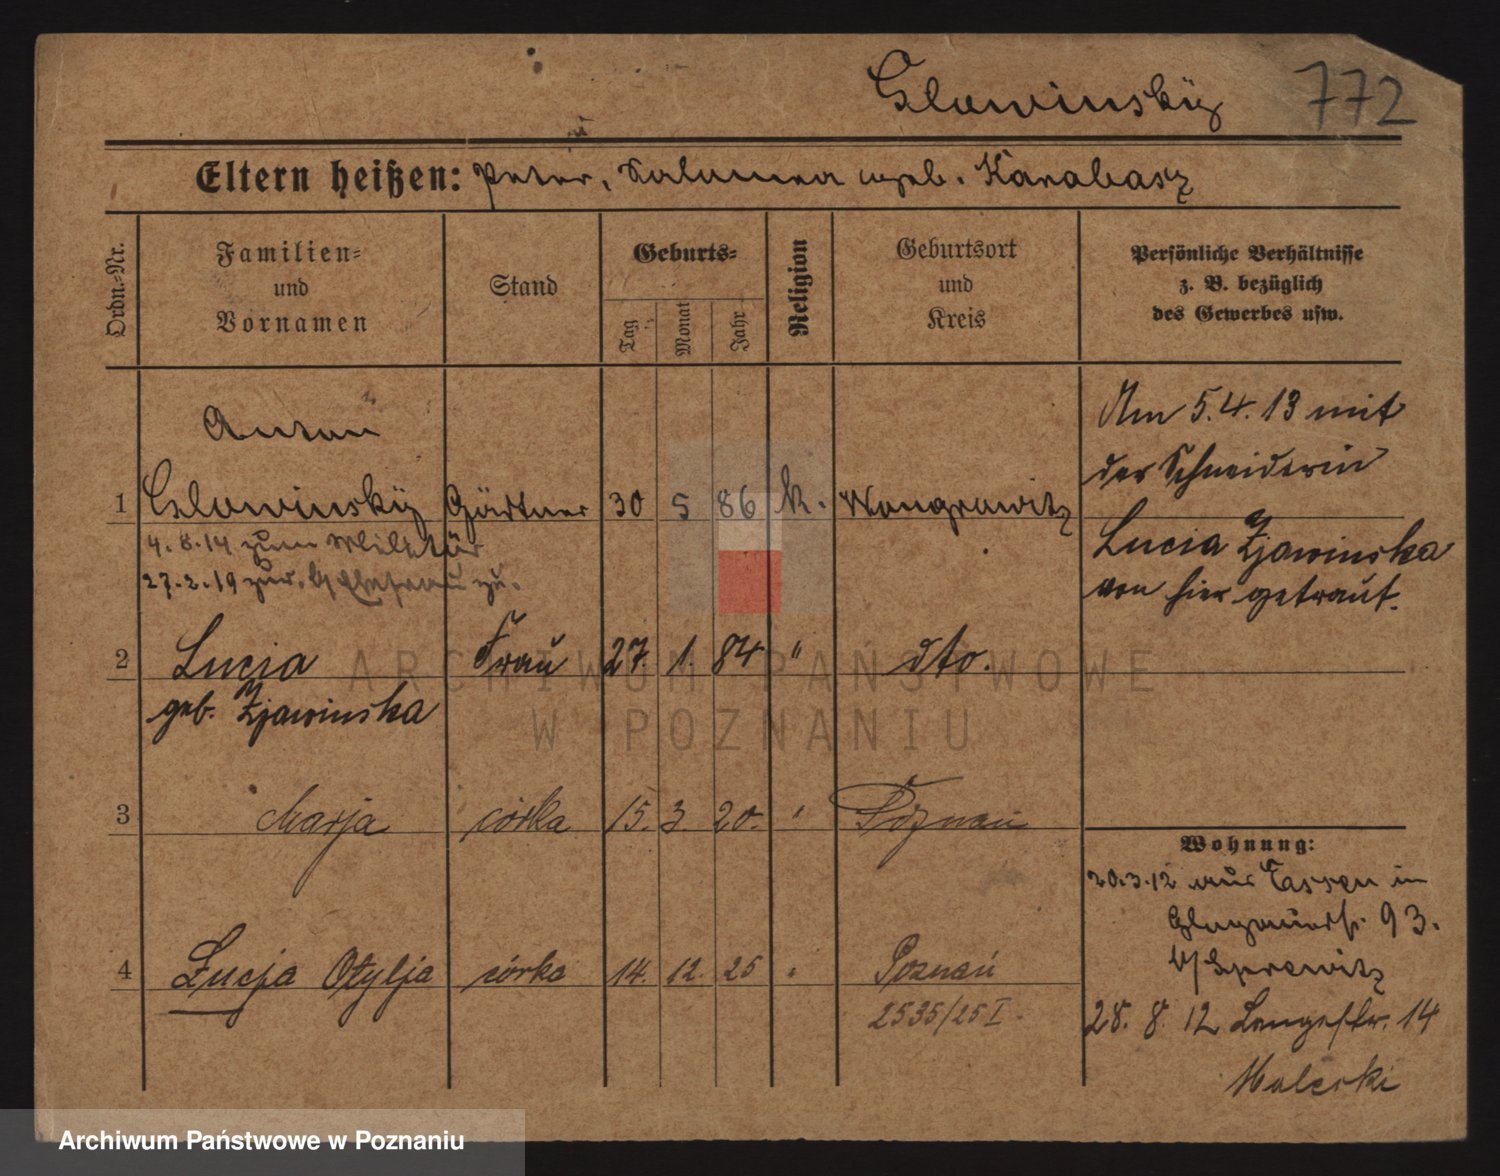 Glowinsky 772
Eltern heißen: Peter, Salomea geb. Karabasz
Ordn.-Nr.
Familien-
und
Vornamen
Stand
Geburts-
Tag
Monat
Jahr
Religion
Geburtsort
und
Kreis
Persönliche Verhältnisse
z. B. bezüglich
des Gewerbes usw.
Anton
1 Glowinsky Gärtner 30 5 86 k. Wongrowitz
4.8.14 zum Militär
27.2.19 zur. zu.
Am 5.4.13 mit
der Schneiderin
Lucia Zjawinska
von hier getraut.
2 Lucia Frau 27. 1. 84 " dto.
geb. Zjawinska
3 Marja córka 15. 3. 20. " Poznań
4 Łucja Otylja córka 14. 12. 25 " Poznań
2535/25 I.
Wohnung:
20.3.12 aus in
Glogauerstr. 93.
b/
28. 8. 12 Langestr. 14
Malerki
ARCHIWUM PAŃSTWOWE
W POZNANIU
Archiwum Państwowe w Poznaniu